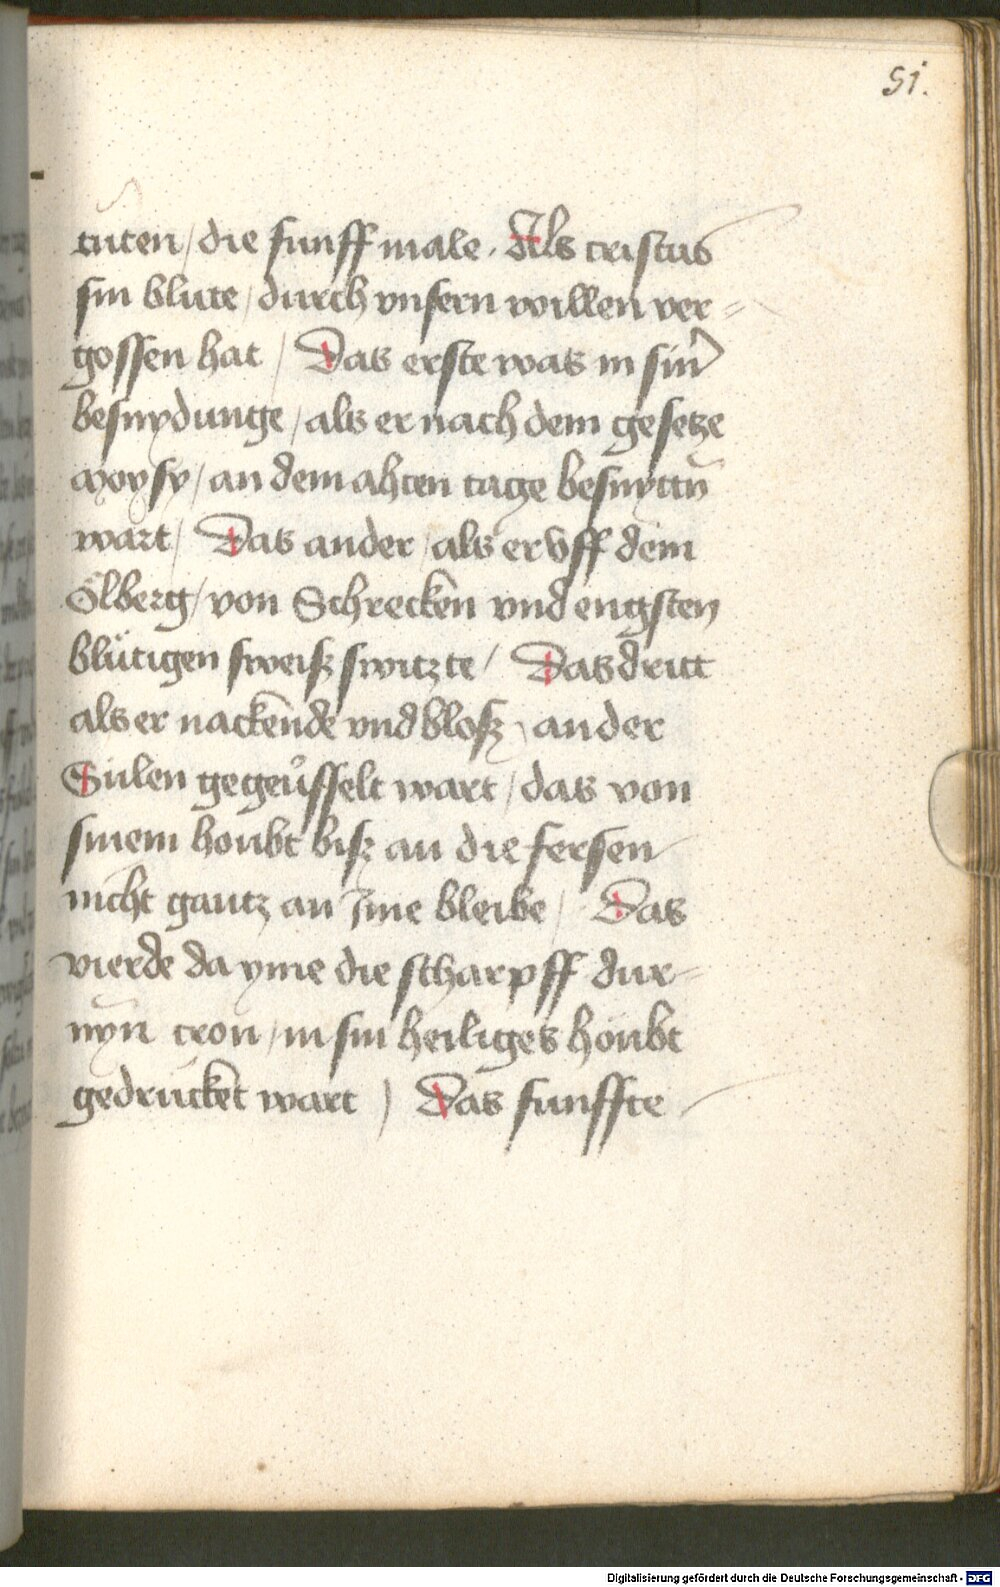 51.
tuten / die funff male . Als cristus
sin blute / durch vnsern willen ver=
gossen hat / Das erste was in sin̄
besnydunge / als er nach dem gesetze
moysy / an dem ahten tage besnyttn̄
wart / Das ander / als er vff dem
Ölberg / von Schrecken vnd engsten
blütigen sweisz switzte / Das dritt
als er nackende vnd blosz / an der
Sulen gegeůsselt wart / das von
sinem houbt bisz an die fersen
nicht gantz an Ime bleibe / Das
vierde da yme die scharpff dur=
nyn̄ cron / in sin heiliges houbt
gedrucket wart / Das funffte
Digitalisierung gefördert durch die Deutsche Forschungsgemeinschaft - DFG